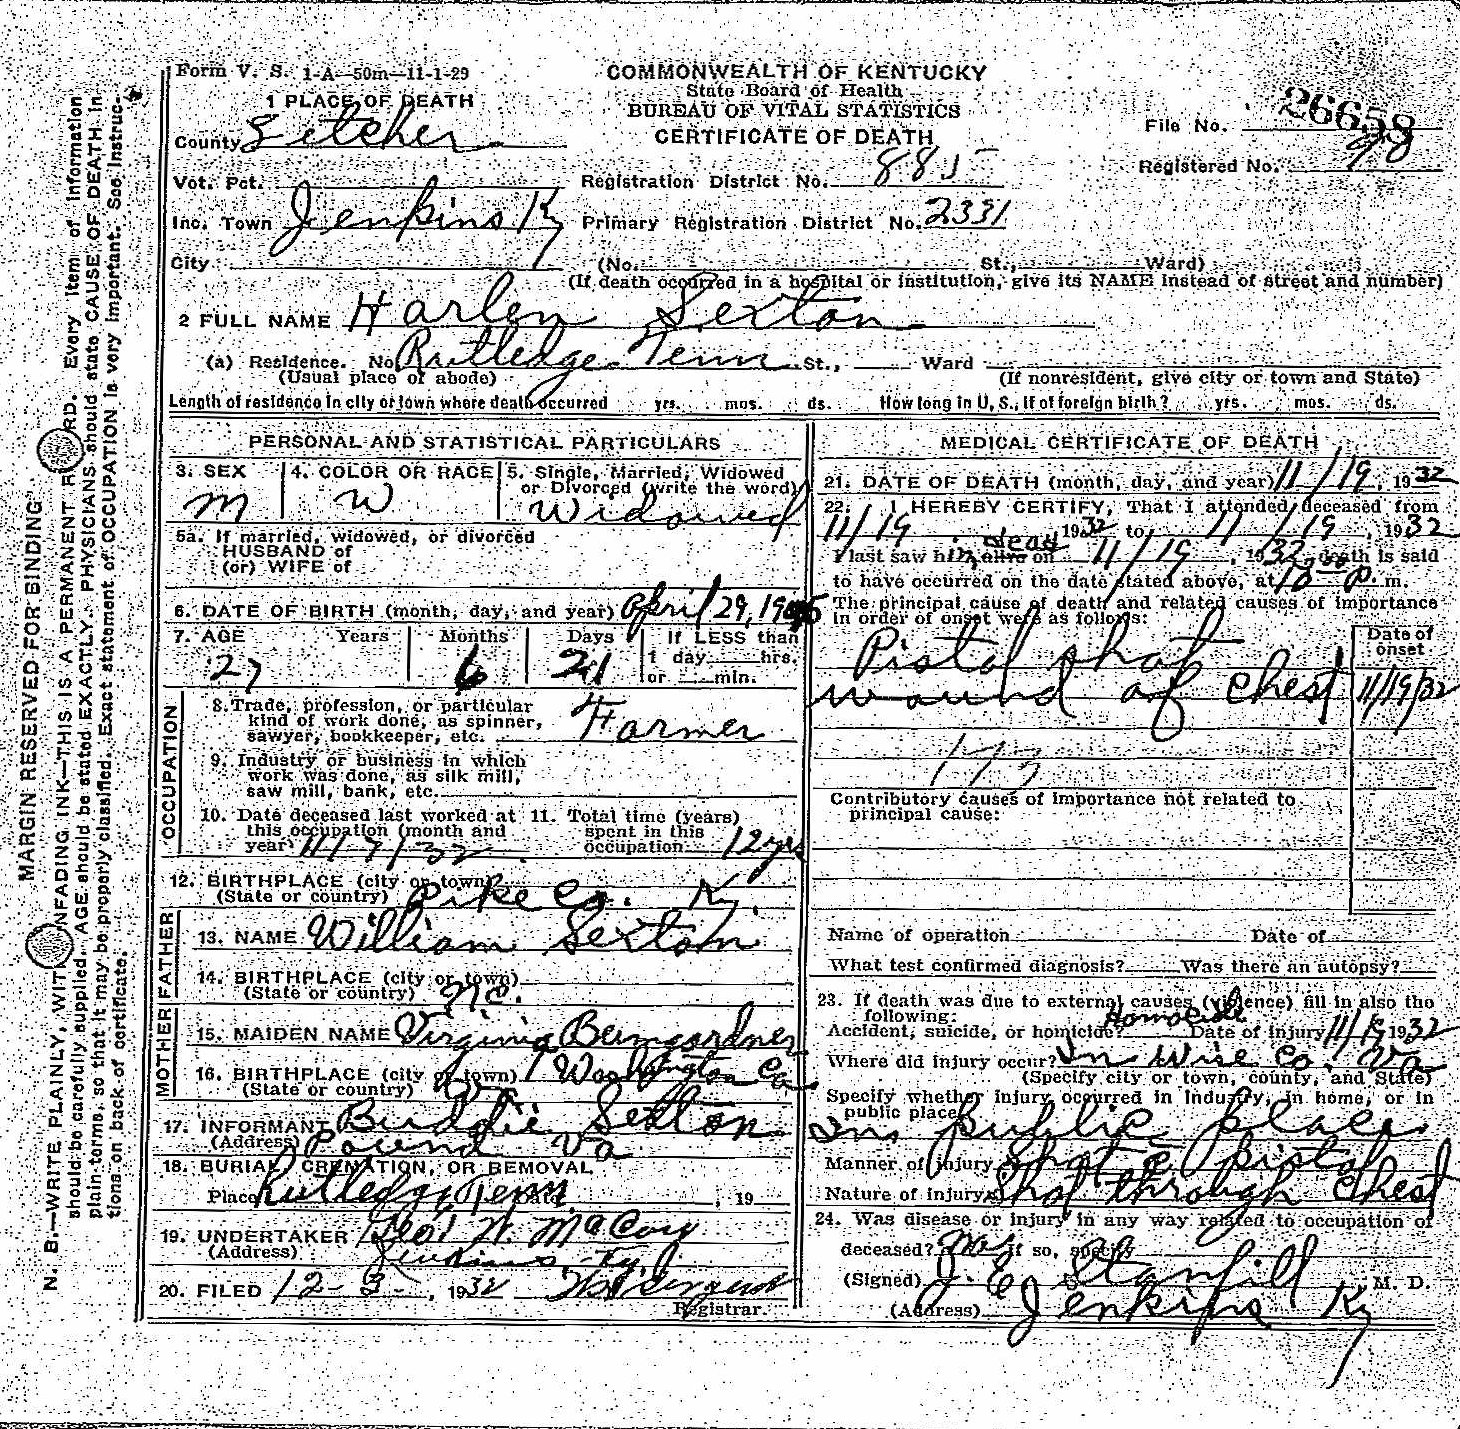 Form V. S. 1-A—50m—11-1-29
COMMONWEALTH OF KENTUCKY
State Board of Health
BUREAU OF VITAL STATISTICS
CERTIFICATE OF DEATH
File No. 26658
Registered No. 98
1 PLACE OF DEATH
County Letcher
Vot. Pct.
Registration District No. 885
Inc. Town Jenkins Ky
Primary Registration District No. 2331
City
(No. St., Ward)
(If death occurred in a hospital or institution, give its NAME instead of street and number)
2 FULL NAME Harlen Sexton
(a) Residence. No. Rutledge Tenn. St., Ward
(Usual place of abode)
(If nonresident, give city or town and State)
Length of residence in city or town where death occurred yrs. mos. ds. How long in U. S., if of foreign birth? yrs. mos. ds.
PERSONAL AND STATISTICAL PARTICULARS
3. SEX
4. COLOR OR RACE
5. Single, Married, Widowed
or Divorced (write the word)
M
W
Widowed
5a. If married, widowed, or divorced
HUSBAND of
(or) WIFE of
6. DATE OF BIRTH (month, day, and year) April 29, 1905
7. AGE Years Months Days If LESS than
27 6 21 1 day hrs.
or min.
OCCUPATION
8. Trade, profession, or particular
kind of work done, as spinner,
sawyer, bookkeeper, etc. Farmer
9. Industry or business in which
work was done, as silk mill,
saw mill, bank, etc.
10. Date deceased last worked at
this occupation (month and
year) 11/7/32
11. Total time (years)
spent in this
occupation 12 yrs
12. BIRTHPLACE (city or town)
(State or country) Pike Co. Ky.
FATHER
13. NAME William Sexton
14. BIRTHPLACE (city or town)
(State or country) N.C.
MOTHER
15. MAIDEN NAME Virginia Bumgardner
16. BIRTHPLACE (city or town) Washington Co
(State or country) Va
17. INFORMANT Buddie Sexton
(Address) Pound Va
18. BURIAL, CREMATION, OR REMOVAL
Place Rutledge Tenn. Date , 19
19. UNDERTAKER Geo. W. McCoy
(Address) Jenkins, Ky.
20. FILED 12-3-, 1932
Registrar.
MEDICAL CERTIFICATE OF DEATH
21. DATE OF DEATH (month, day, and year) 11/19, 1932
22. I HEREBY CERTIFY, That I attended deceased from
11/19, 1932 to 11/19, 1932
I last saw him alive on dead 11/19, 1932 death is said
to have occurred on the date stated above, at p. m.
The principal cause of death and related causes of importance
in order of onset were as follows:
Date of
onset
Pistol shot
wound of chest 11/19/32
173
Contributory causes of importance not related to
principal cause:
Name of operation Date of
What test confirmed diagnosis? Was there an autopsy?
23. If death was due to external causes (violence) fill in also the
following:
Accident, suicide, or homicide? Homicide Date of injury 11/19 1932
Where did injury occur? In Wise Co. Va
(Specify city or town, county, and State)
Specify whether injury occurred in industry, in home, or in
public place. In public place
Manner of injury Shot c pistol
Nature of injury Shot through chest
24. Was disease or injury in any way related to occupation of
deceased? No If so, specify
(Signed) J. E. Stanfill M. D.
(Address) Jenkins Ky
MARGIN RESERVED FOR BINDING
N. B.—WRITE PLAINLY, WITH UNFADING INK—THIS IS A PERMANENT RECORD. Every item of information
should be carefully supplied. AGE should be stated EXACTLY. PHYSICIANS should state CAUSE OF DEATH in
plain terms, so that it may be properly classified. Exact statement of OCCUPATION is very important. See instruc-
tions on back of certificate.